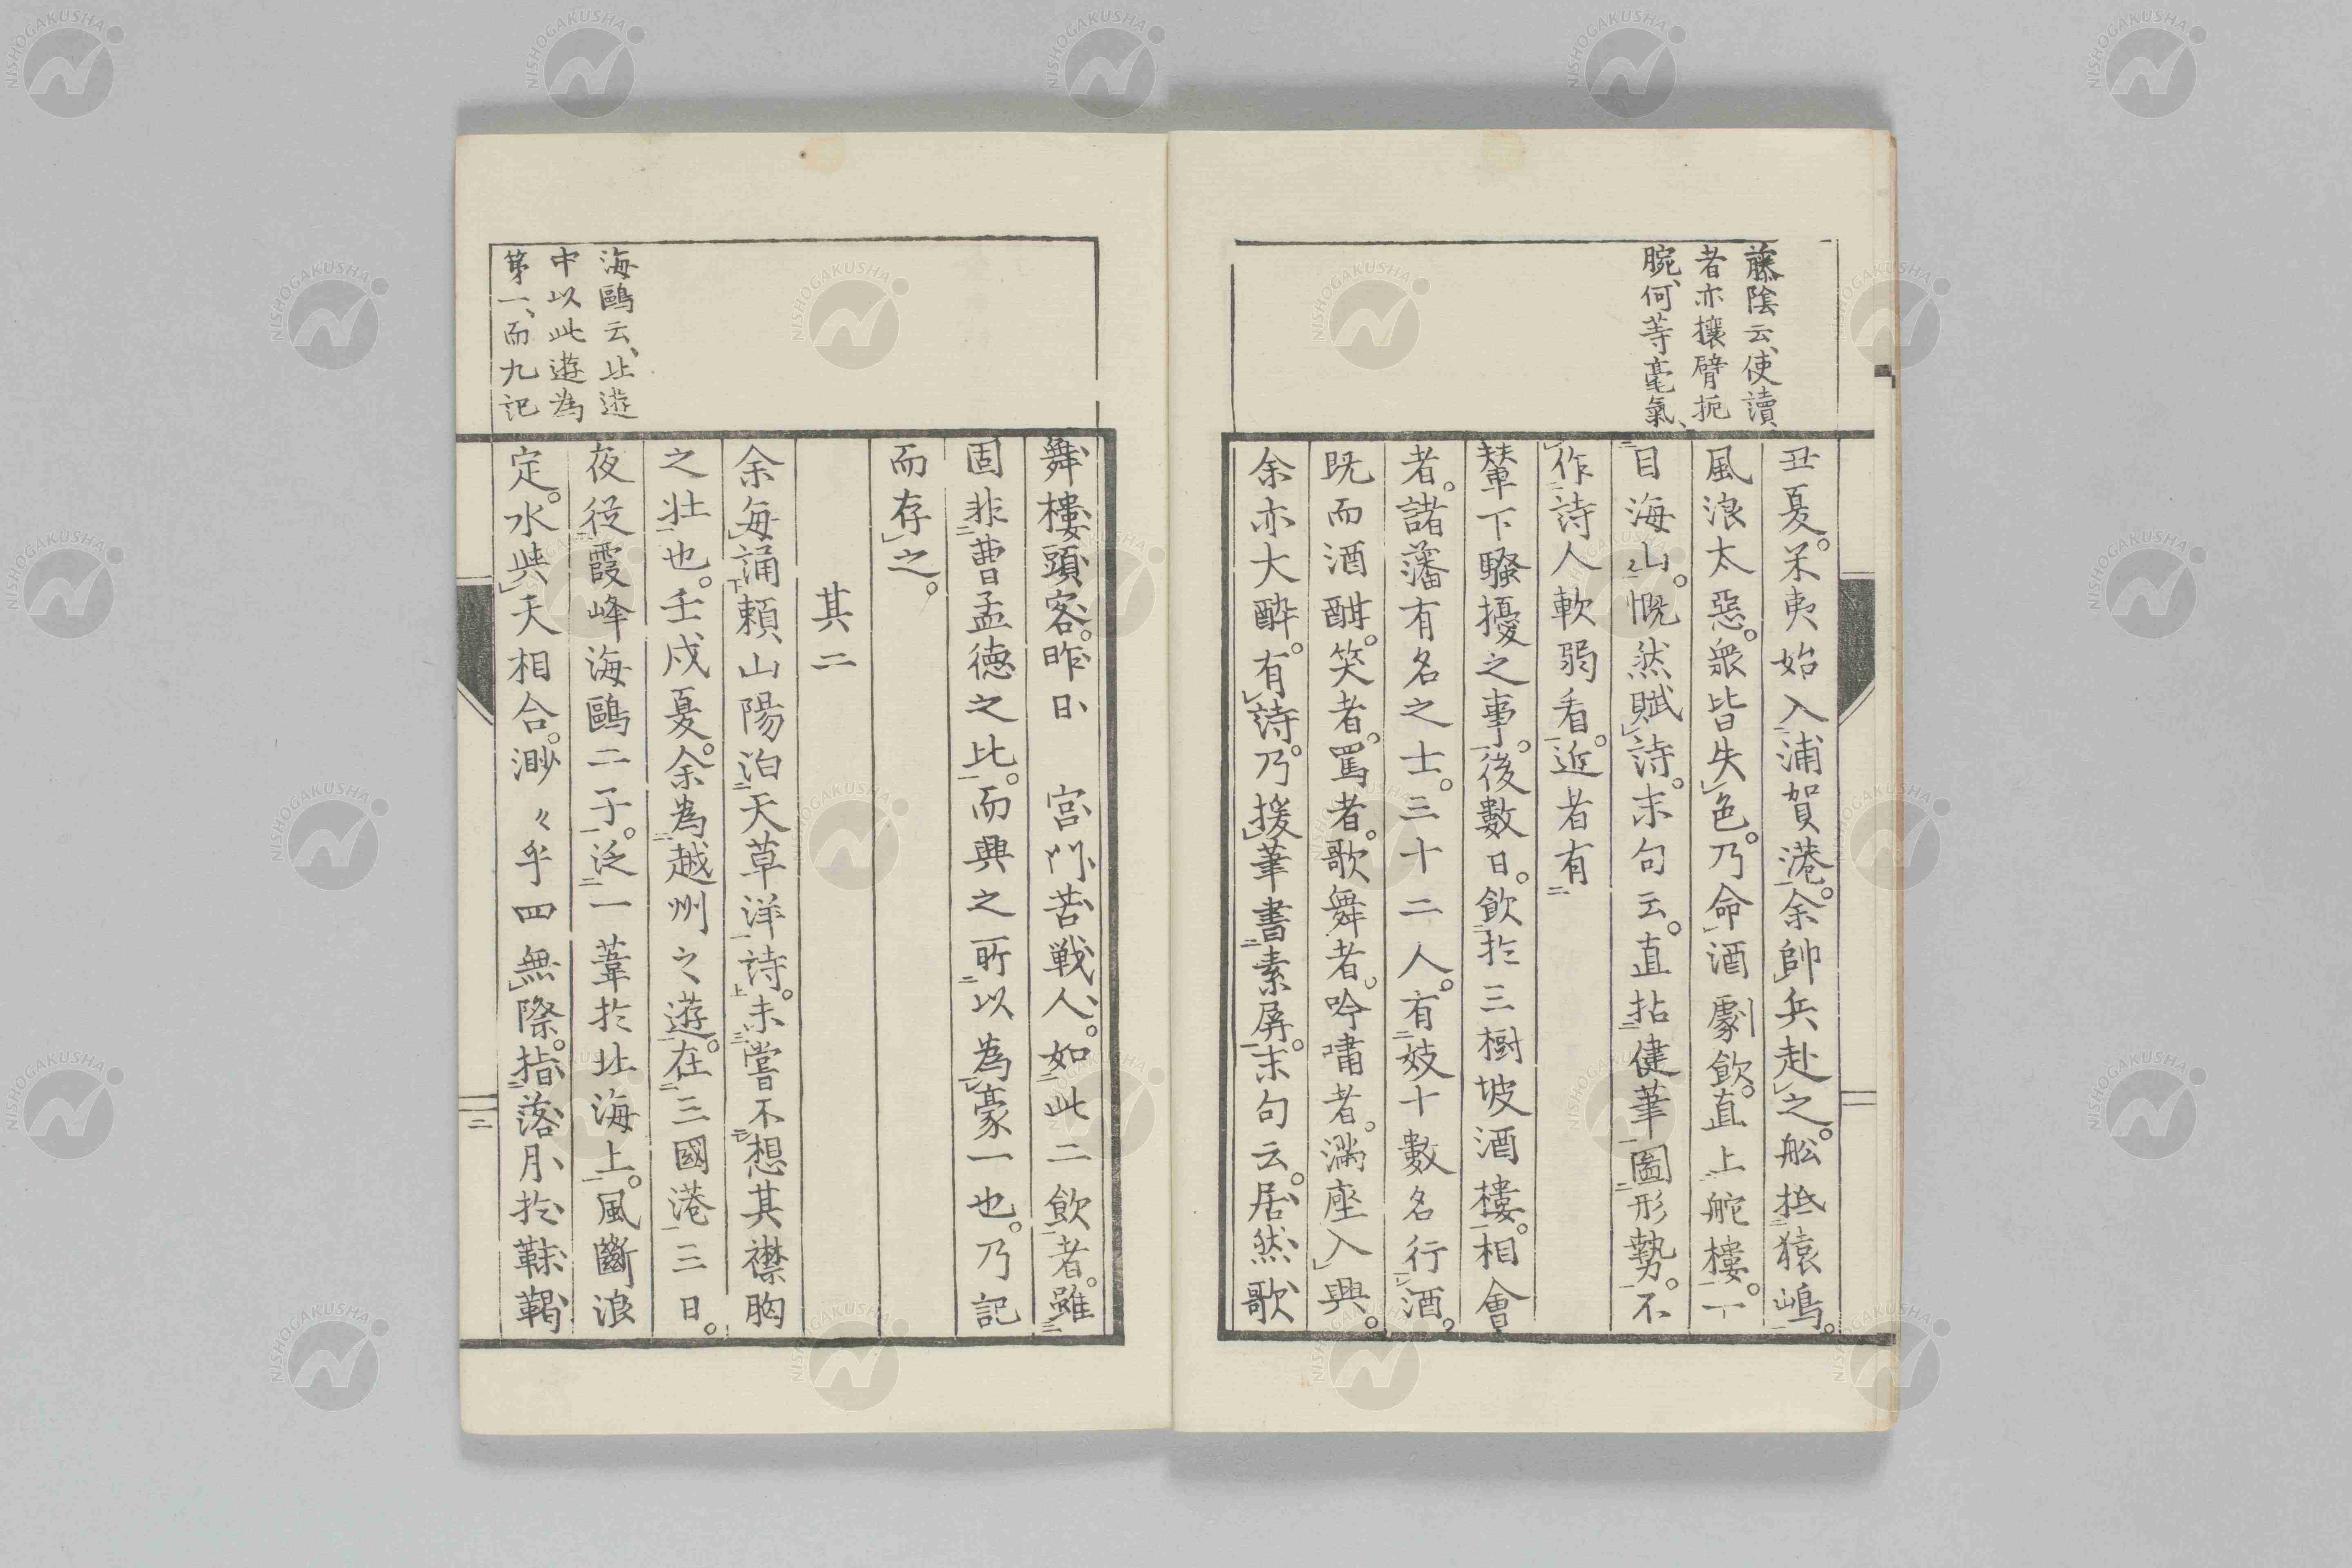 藤陰云、使讀
者亦攘臂扼
腕、何等毫氣、
丑夏。米夷始入浦賀港。余帥兵赴之。舩抵猿嶋。
風浪太惡。衆皆失色。乃命酒劇飲。直上舵樓。一
目海山。慨然賦詩。末句云。直拈健筆圖形勢。不
作詩人軟弱看。近者有
輦下騷擾之事。後數日。飲於三樹坡酒樓。相會
者。諸藩有名之士。三十二人。有妓十數名行酒。
既而酒酣。笑者。罵者。歌舞者。吟嘯者。滿座入興。
余亦大醉。有詩。乃援筆書素屏。末句云。居然歌
舞樓頭客。昨日 宮門苦戰人。如此二飲者。雖
固非曹孟德之比。而興之所以為豪一也。乃記
而存之。
其二
余每誦賴山陽泊天草洋詩。未嘗不想其襟胸
之壯也。壬戌夏。余為越州之遊。在三國港三日。
海鷗云、北遊
中以此遊為
第一、而九記
夜從霞峰海鷗二子。泛一葦於北海上。風斷浪
定。水與天相合。渺々乎四無際。指落月於靺鞨
二
NISHOGAKUSHA